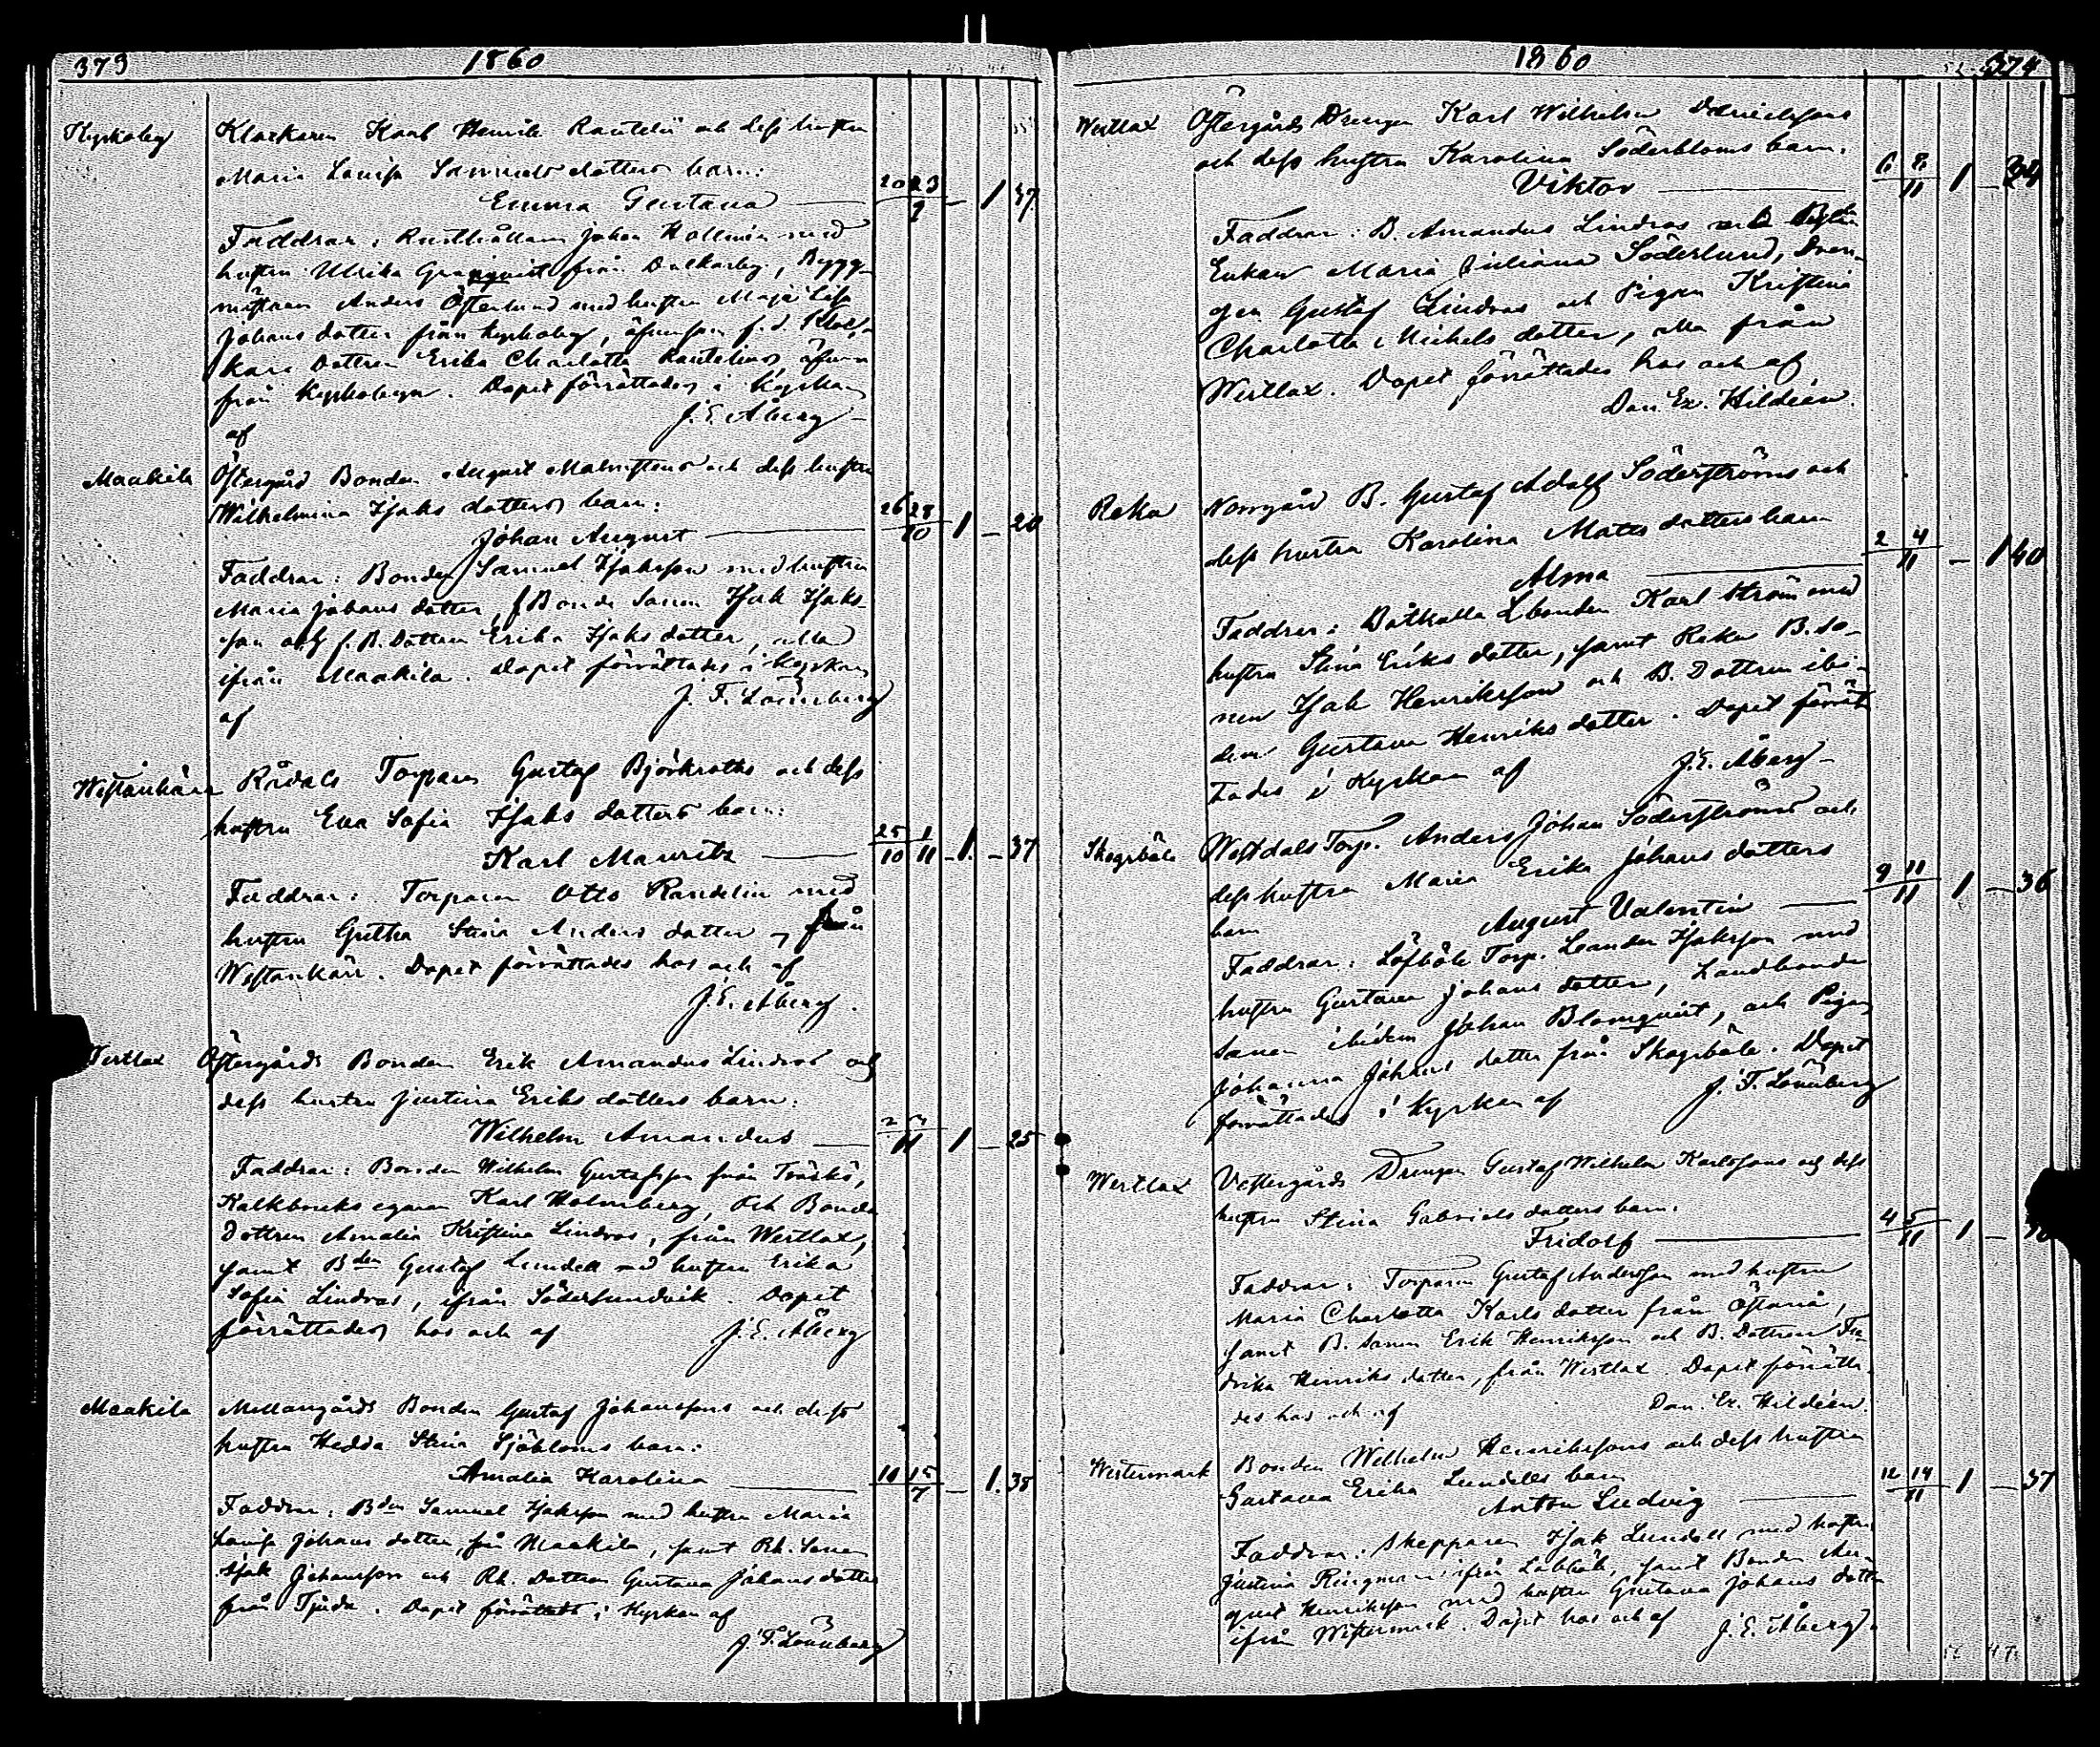 373 1860
Kyrkoby Klockaren Karl Henrik Rautelii och dess hustru
Maria Lovisa Samuels dotters barn:
Emma Gustava 20 23/9 — 1 37
Faddrar: Rusthållaren Johan Hollmén med
hustru Ulrika Granqvist från Dalkarby, Bygg-
mästaren Anders Österlund med hustru Maja Lisa
Johans dotter från Kyrkoby, äfvensom f.d. Kloc-
kare Dottren Erika Charlotta Rautelius, äfven
från Kyrkobyn. Dopet förrättades i Kyrkan
af J. E. Åberg
Maakila Östergård Bonden August Malmstens och dess hustru
Wilhelmina Isaks dotters barn:
Johan August 26 28/10 1 — 20
Faddrar: Bonden Samuel Isaksson med hustru
Maria Johans dotter, f. Bonde Sonen Isak Isaks-
son och f. B. Dottren Erika Isaks dotter, alla
ifrån Maakila. Dopet förrättades i Kyrkan
af J. F. Lönnberg
Westankärr Rådals Torparen Gustaf Björkroths och dess
hustru Eva Sofia Isaks dotters barn:
Karl Mauritz 25/10 1/11 1 — 37
Faddrar: Torparen Otto Randelin med
hustru Gretha Stina Anders dotter, från
Westankärr. Dopet förrättades hos och af
J. E. Åberg.
Wertlax Östergårds Bonden Erik Amandus Lindros och
dess hustru Justina Eriks dotters barn:
Wilhelm Amandus 2 /11 1 — 25
Faddrar: Bonden Wilhelm Gustafsson från Träskö,
Kalkbruks egaren Karl Holmberg, och Bonde
Dottren Amalia Kristina Lindros, från Wertlax,
samt Bden Gustaf Lundell med hustru Erika
Sofia Lindros, ifrån Södersundvik. Dopet
förrättades hos och af J. E. Åberg
Maakila Mellangårds Bonden Gustaf Johanssons och dess
hustru Hedda Stina Sjöbloms barn:
Amalia Karolina 11 15/7 — 1. 38
Faddrar: Bden Samuel Isaksson med hustru Maria
Lovisa Johans dotter, från Maakila, samt Rh. Sonen
Isak Johansson och Rh. Dottren Gustava Johans dotter
från Tjuda. Dopet förrättades i Kyrkan af
J. F. Lönnberg
1860 374
Wertlax Östergårds Drengen Karl Wilhelm
och dess hustru Karolina Söderbloms barn:
Viktor 6 8/11 1 — 24
Faddrar: B. Amandus Lindros med
Enkan Maria Juliana Södersund, Dren-
gen Gustaf Lindros och Pigan Kristina
Charlotta Michels dotter, alla från
Wertlax. Dopet förrättades hos och af
Dan. Er. Hildéen.
Reku Norrgård B. Gustaf Adolf Söderströms och
dess hustru Karolina Matts dotters barn
Alma 2 4/11 — 1 40
Faddrar: Båtkulla Lbonden Karl Ström med
hustru Stina Eriks dotter, samt Reku B. so-
nen Isak Henriksson och B. Dottren ibi-
dem Gustava Henriks dotter. Dopet förrät-
tades i Kyrkan af J. E. Åberg
Skogsböle Westdals Torp. Anders Johan Söderströms och
dess hustru Maria Erika Johans dotters
barn August Valentin 9 11/11 1 — 36
Faddrar: Löfböle Torp. Leander Isaksson med
hustru Gustava Johans dotter, Landbonde
Sonen ibidem Johan Blomqvist, och Pigan
Johanna Johans dotter från Skogsböle. Dopet
förrättades i Kyrkan af J. F. Lönnberg
Wertlax Vestergårds Drengen Gustaf Wilhelm Karlssons och dess
hustru Stina Gabriels dotters barn.
Fridolf 4 5/11 1 —
Faddrar: Torparen Gustaf Andersson med hustru
Maria Charlotta Karls dotter från Östanå,
samt B. Sonen Erik Henriksson och B. Dottren Fre-
drika Henriks dotter, från Wertlax. Dopet förrätta-
des hos och af Dan. Er. Hildéen.
Westermark Bonden Wilhelm Henrikssons och dess hustru
Gustava Erika Lundells barn
Anton Ludvig 12 14/11 1 — 37
Faddrar: Skepparen Isak Lundell med hustru
Justina Ringman ifrån Labböle, samt Bonden Au-
gust Henriksson med hustru Gustava Johans dotter
ifrån Westermark. Dopet hos och af J. E. Åberg.